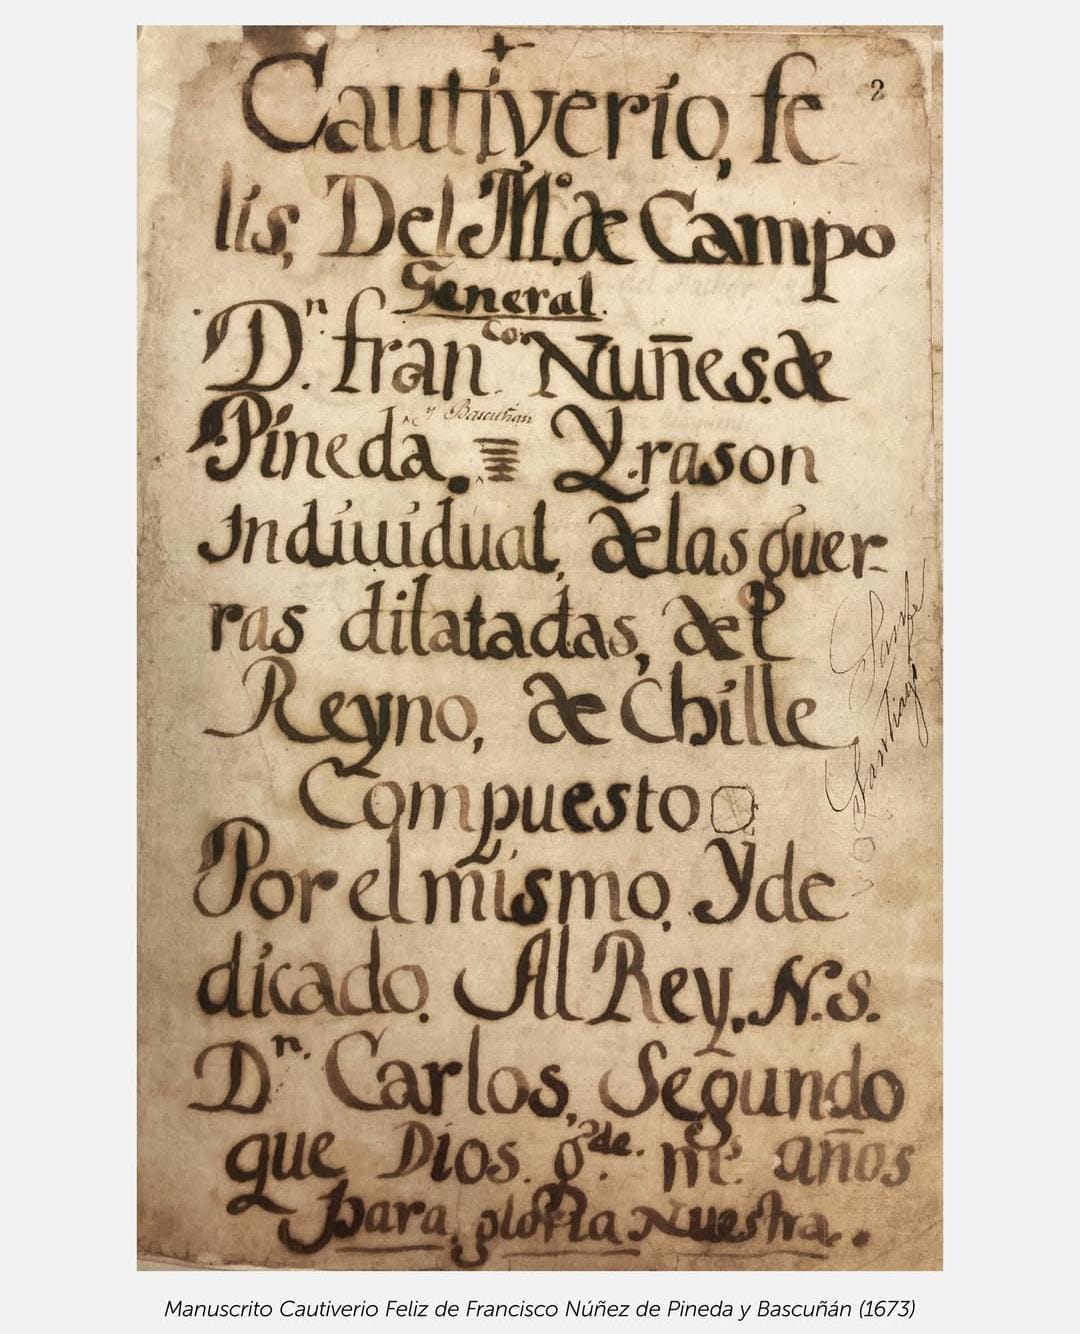 2
Cautiverio, fe
lis, Del M.º de Campo
General.
D.n fran.co Nuñes. de
y Bascuñan
Pineda. Y. rason
Indiuidual, de las guer-
ras dilatadas, del
Reyno, de Chille
Compuesto
Por el mismo, Y de
dicado. Al Rey. N.S.
D.n Carlos, Segundo
que Dios. g.de m.s años
para gloria Nuestra.
Santiago
Manuscrito Cautiverio Feliz de Francisco Núñez de Pineda y Bascuñán (1673)